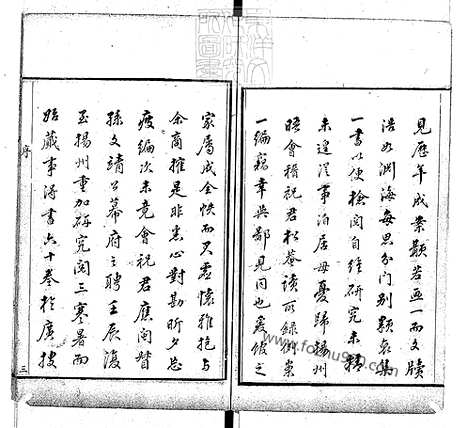 見歷年成案類若画一而文牘
浩如淵海每思分门别類裒集
一書以便檢閱自維研究未精
未遑從事泊居母憂歸揚州
晤會稽祝君松菴讀所錄衡案
一編竊幸与鄙見同也爰倣之
家屬成全帙而又虛懷雅抱与
余商榷是非悉心對勘昕夕忘
疲編次未竟會祝君應閩督
孫文靖公幕府之聘壬辰復
至揚州重加研究閱三寒暑而
始蕆事得書六十卷於廣搜
序
三